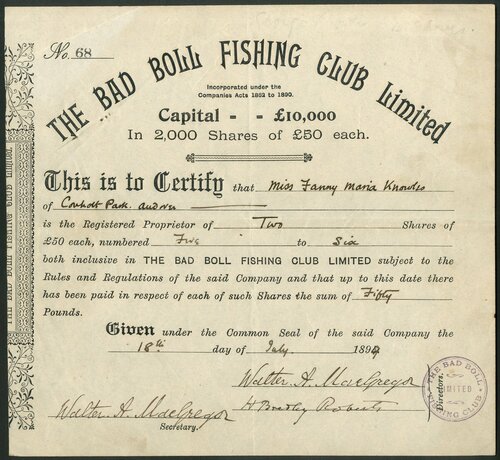 No. 68
THE BAD BOLL FISHING CLUB Limited
Incorporated under the
Companies Acts 1862 to 1890.
Capital - - £10,000
In 2,000 Shares of £50 each.
This is to Certify that Miss Fanny Maria Knowles
of Conholt Park. Andover
is the Registered Proprietor of Two Shares of
£50 each, numbered Five to Six
both inclusive in THE BAD BOLL FISHING CLUB LIMITED subject to the
Rules and Regulations of the said Company and that up to this date there
has been paid in respect of each of such Shares the sum of Fifty
Pounds.
Given under the Common Seal of the said Company the
18th day of July 1899
Walter A. MacGregor
H Bradley Roberts
Directors.
Walter. A. MacGregor
Secretary.
THE BAD BOLL
LIMITED
FISHING CLUB